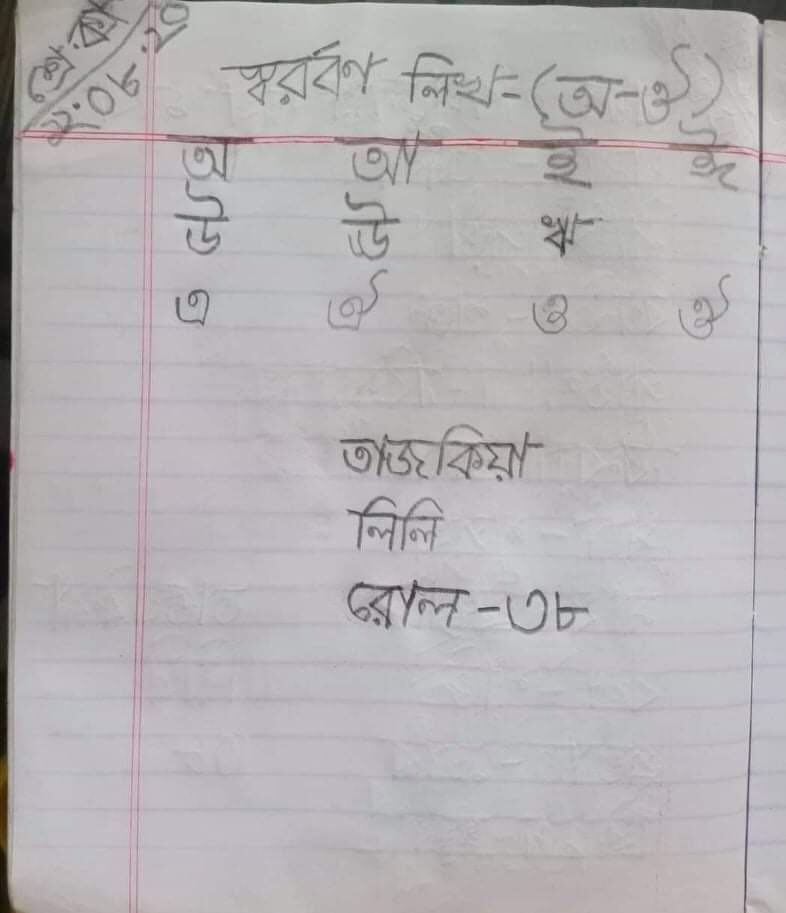 শ্রে.কা
২.০৮.২০
স্বরর্বণ লিখ-(অ-ঔ)
অ আ ই ঈ
উ ঊ ঋ
এ ঐ ও ঔ
তাজকিয়া
লিলি
রোল -৩৮